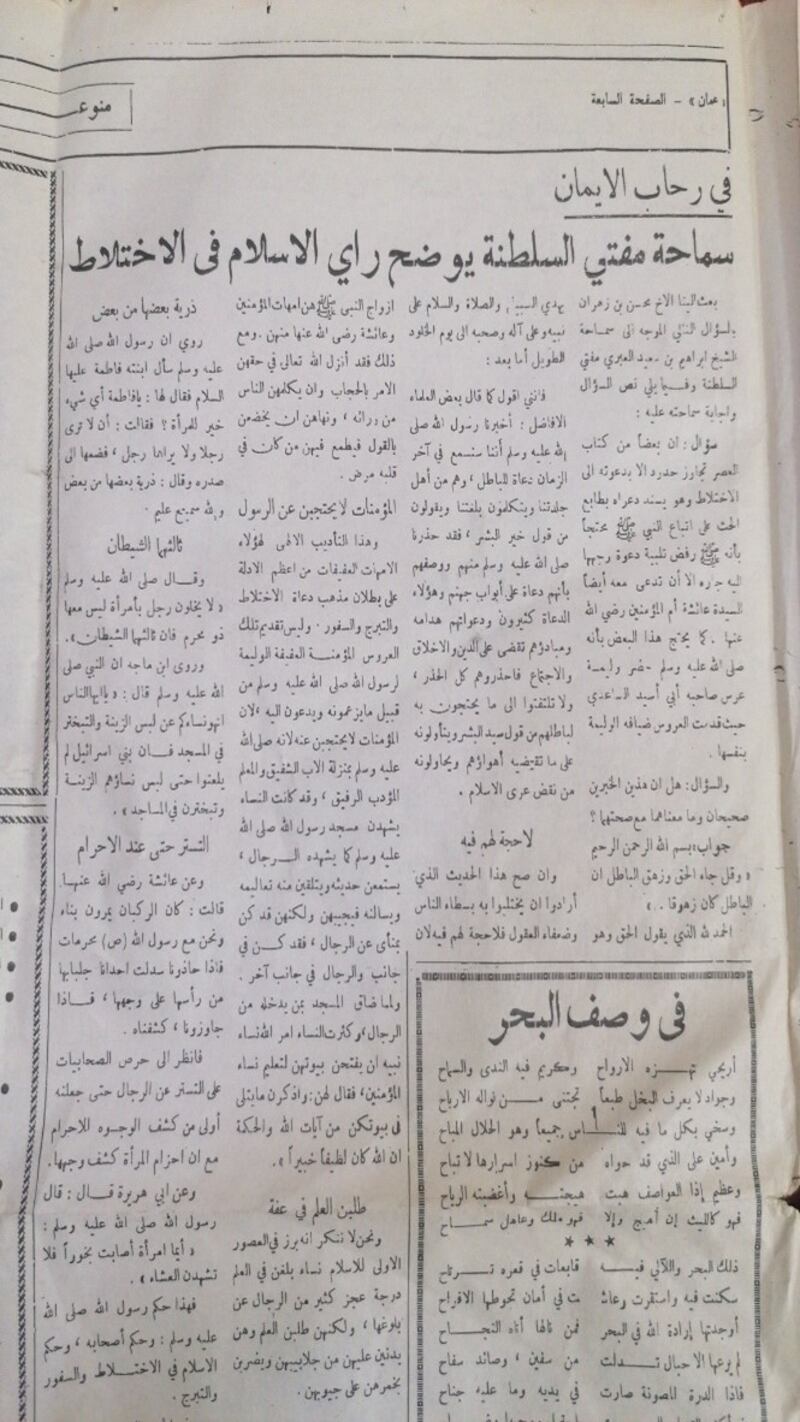 « عمان » - الصفحة السابعة
منوعـ
في رحاب الايمان
سماحة مفتي السلطنة يوضح راي الاسلام فى الاختلاط
بعث الينا الاخ محسن بن زهران
بالسؤال التالي الموجه الى سماحة
الشيخ ابراهيم بن سعيد العبري مفتي
السلطنة وفيما يلي نص السؤال
واجابة سماحته عليه :
سؤال : ان بعضاً من كتاب
العصر تجاوز حدود الا بدعوته الى
الاختلاط وهو يسند دعواه بطابع
الحث على اتباع النبي ﷺ محتجاً
بأنه ﷺ رفض تلبية دعوة وجهها
اليه جاره الا أن تدعى معه أيضاً
السيدة عائشة أم المؤمنين رضي الله
عنها . كما يحتج هذا البعض بأنه
صلى الله عليه وسلم حضر وليمة
عرس صاحبه أبي أسيد الساعدي
حيث قدمت العروس ضيافه الوليمة
بنفسها .
والسؤال : هل ان هذين الخبرين
صحيحان وما معناهما مع صحتهما ؟
جواب : بسم الله الرحمن الرحيم
« وقل جاء الحق وزهق الباطل ان
الباطل كان زهوقا .. »
الحمد لله الذي يقول الحق وهو
يهدي السبيل والصلاة والسلام على
نبيه وعلى آله وصحبه الى يوم الخلود
الطويل أما بعد :
فانني اقول كما قال بعض العلماء
الافاضل : أخبرنا رسول الله صلى
الله عليه وسلم أننا سنسمع في آخر
الزمان دعاة للباطل ، وهم من أهل
جلدتنا ويتكلمون بلغتنا ويقولون
من قول خير البشر ، فقد حذرنا
صلى الله عليه وسلم منهم ووصفهم
بأنهم دعاة على أبواب جهنم وهؤلاء
الدعاة كثيرون ودعواتهم هدامه
ومبادؤهم تقضى على الدين والاخلاق
والاجتماع فاحذروهم كل الحذر ،
ولا تلتفتوا الى ما يحتجون به
لباطلهم من قول سيد البشر ويتأولونه
على ما تقتضيه أهواؤهم ويحاولونه
من نقض عرى الاسلام .
لا حجة لهم فيه
وان صح هذا الحديث الذي
أرادوا ان يختلبوا به بسطاء الناس
وضعفاء العقول فلا حجة لهم فيه لان
ازواج النبي ﷺ هن امهات المؤمنين
وعائشة رضى الله عنها منهن . ومع
ذلك فقد أنزل الله تعالى في حقهن
الامر بالحجاب وان يكلمهن الناس
من ورائه ، ونهاهن ان يخضعن
بالقول فيطمع فيهن من كان في
قلبه مرض .
المؤمنات لا يحتجبن عن الرسول
وهذا التأديب الالهى لهؤلاء
الامهات العفيفات من اعظم الادلة
على بطلان مذهب دعاة الاختلاط
والتبرج والسفور . وليس تقديم تلك
العروس المؤمنـة العفيفة الوليمة
لرسول الله صلى الله عليه وسلم من
قبيل ما يزعمونه ويدعون اليه ، لان
المؤمنات لا يحتجبن عنه لانه صلى الله
عليه وسلم بمنزلة الاب الشفيق والمعلم
المؤدب الرفيق ، وقد كانت النساء
يشهدن مسجد رسول الله صلى الله
عليه وسلم كما يشهده الـرجال ،
يستمعن حديثه ويتلقين منه تعاليمه
ويسالنه فيجيبهن ولكنهن قد كن
بمنأى عن الرجال ، فقد كـن في
جانب والرجال في جانب آخر .
ولما ضاق المسجد بمن يدخله من
الرجال ، وكثرت النساء امر الله نساء
نبيه ان يفتحن بيوتهن لتعليم نساء
المؤمنين ، فقال لهن : واذكرن ما يتلى
فى بيوتكن من آيات الله والحكمة
ان الله كان لطيفاً خبيراً » .
طلبن العلم في عفة
ونحن لا ننكر انه برز في العصور
الاولى للاسلام نساء بلغن في العلم
درجة عجز كثير من الرجال عن
بلوغها ، ولكنهن طلبن العلم وهن
يدنين عليهن من جلابيبهن ويضربن
بخمرهن على جيوبهن .
ذرية بعضها من بعض
روي ان رسول الله صلى الله
عليه وسلم سأل ابنته فاطمة عليها
السلام فقال لها : يا فاطمة أي شيء
خير للمرأة ؟ فقالت : أن لا ترى
رجلا ولا يراها رجل ، فضمها الى
صدره وقال : ذرية بعضها من بعض
والله سميع عليم .
ثالثهما الشيطان
وقـال صلى الله عليه وسلم
« لا يخلون رجل بأمرأة ليس معها
ذو محرم فان ثالثهما الشيطان » .
وروى ابن ماجه ان النبي صلى
الله عليه وسلم قال : « يا ايها الناس
انهوا نساءكم عن لبس الزينة والتبختر
في المسجد فـان بني اسرائيل لم
يلعنوا حتى لبس نساؤهم الزينـة
وتبخترن في المساجد » .
التستر حتى عند الاحرام
وعن عائشة رضى الله عنهـا
قالت : كان الركبان يمرون بناء
ونحن مع رسول الله (ص) محرمات
فاذا حاذونا سدلت احدانا جلبابها
من رأسها على وجهها ، فـاذا
جاوزونا ، كشفناه .
فانظر الى حرص الصحابيات
على التستر عن الرجال حتى جعلنه
أولى من كشف الوجـوه للاحرام
مع ان احرام المرأة كشف وجهها .
وعن ابي هريرة قـال : قال
رسول الله صلى الله عليه وسلم :
« أيما امرأة أصابت بخوراً فلا
تشهدن العشاء » .
فهذا حكم رسول الله صلى الله
عليه وسلم : وحكم أصحابه ، وحكم
الاسلام في الاختـلاط والسفور
والتبرج .
فى وصف البحر
أريحي تهـزه الارواح وكريم فيه الندى والسماح
وجواد لا يعرف البخل طبعاً تجتنى مـن نواله الارباح
وسخي بكل ما فيه للنـاس جميعاً وهو الحلال المباح
وأمين على الذي قد حواه من كنوز اسرارها لا تباح
وعظيم إذا العواصف هبت هيجتـه وأغضبته الرياح
فهو كالليث إن أهيج وإلا فهو ملك وعاهل سمـاح
★ ★ ★
ذلك البحر واللآلي فيـه قابعات في قعره تـرتاح
سكنت فيه واستقرت وعاشـ ـت في أمان تحوطها الافراح
أوجدتها إرادة الله في البحر فمن نالها أتاه النجـاح
لم يرعها الا حبال تـدلت من سفين ، وصائد سفاح
فاذا الدرة المصونة صارت في يديه وما عليه جناح